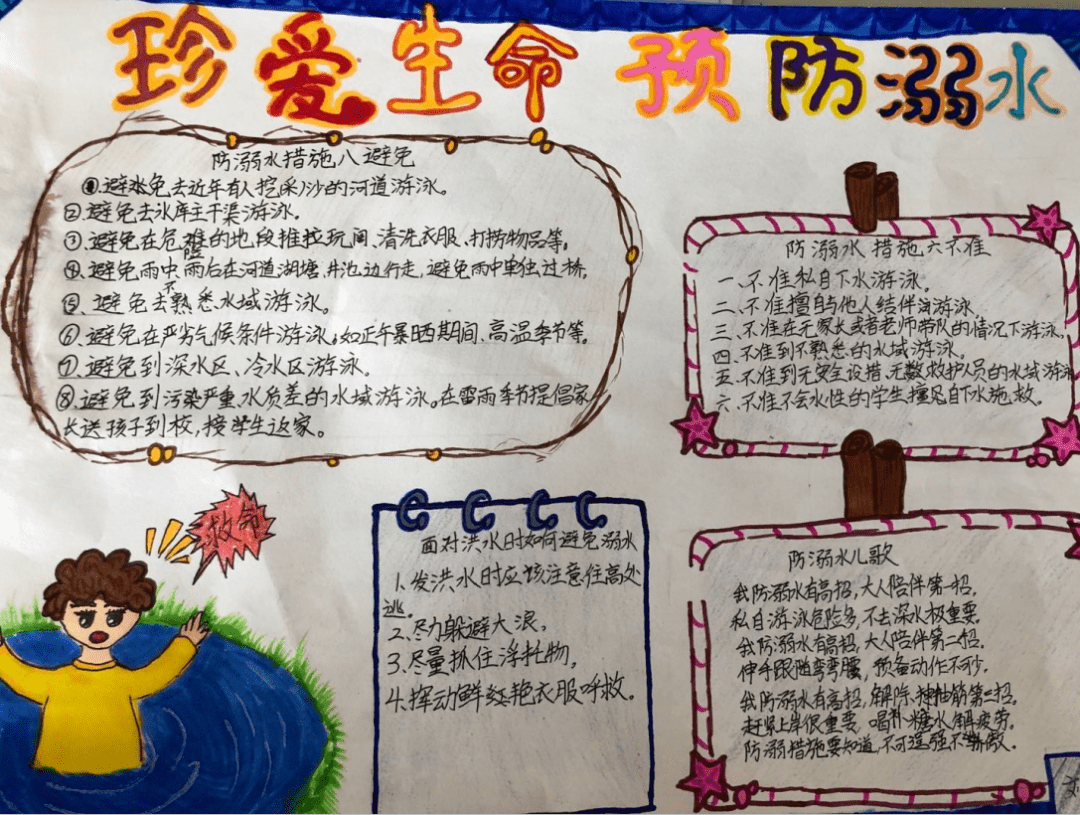 珍爱生命 预防溺水
防溺水措施八避免
①.避免去近年有人挖采沙的河道游泳。
②.避免去水库主干渠游泳。
③.避免在危险的地段推拉玩闹、清洗衣服、打捞物品等。
④.避免雨中、雨后在河道湖塘、井池边行走,避免雨中单独过桥。
⑤.避免去不熟悉水域游泳。
⑥.避免在严劣气候条件游泳,如正午暴晒期间、高温季节等。
⑦.避免到深水区、冷水区游泳。
⑧.避免到污染严重、水质差的水域游泳。在雷雨季节提倡家
长送孩子到校,接学生返家。
防溺水措施六不准
一、不准私自下水游泳。
二、不准擅自与他人结伴游泳。
三、不准在无家长或者老师带队的情况下游泳。
四、不准到不熟悉的水域游泳。
五、不准到无安全设措、无救护人员的水域游泳
六、不准不会水性的学生擅自下水施救。
救命
面对洪水时如何避免溺水
1.发洪水时应该注意往高处
逃。
2.尽力躲避大浪,
3.尽量抓住浮托物,
4.挥动鲜红艳衣服呼救。
防溺水儿歌
我防溺水有高招,大人陪伴第一招,
私自游泳危险多,不去深水极重要。
我防溺水有高招,大人陪伴第二招。
伸手踢腿弯弯腰,预备动作不可少。
我防溺水有高招,解除抽筋第三招
赶紧上岸很重要,喝糖水解疲劳。
防溺措施要知道,不可逞强不骄傲。